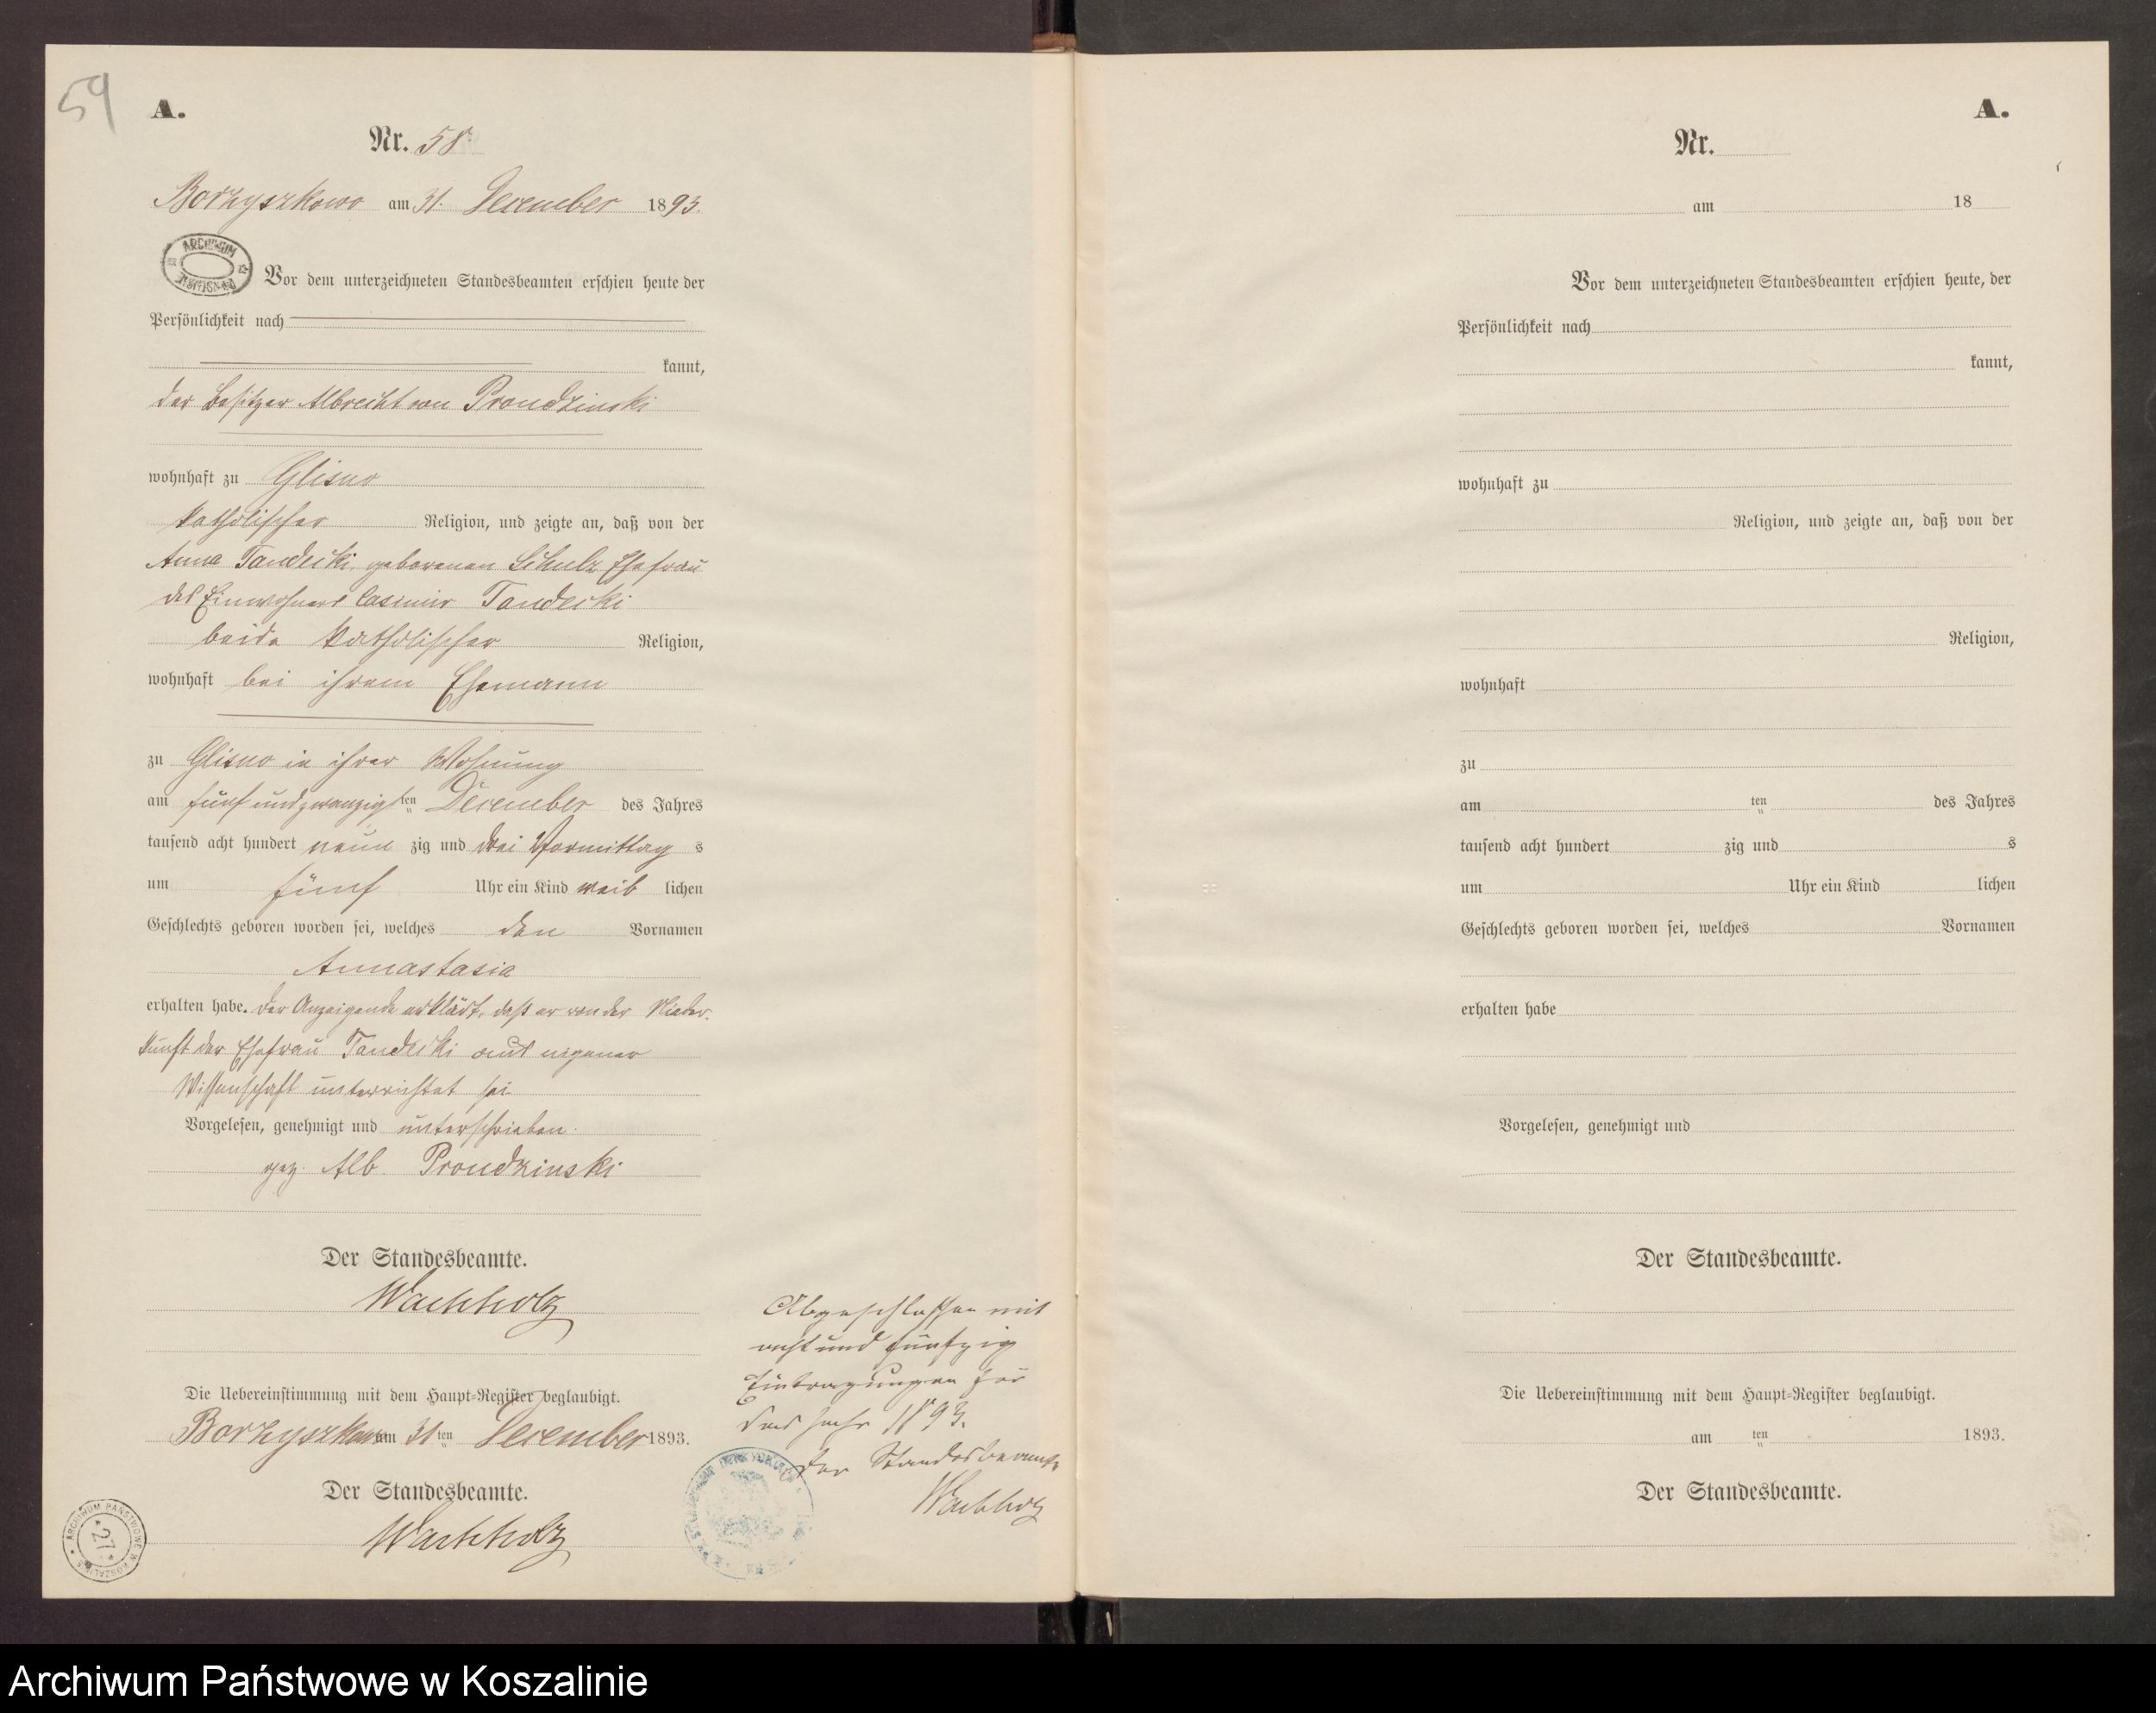 59
A.
Nr. 58.
Borzyszkowo am 31. December 1893.
ARCHIWUM
Vor dem unterzeichneten Standesbeamten erschien heute der
Persönlichkeit nach
kannt,
der Besitzer Albrecht von Prondzinski
wohnhaft zu Glisno
katholischer Religion, und zeigte an, daß von der
Anna Tandecki, geborenen Schulz Ehefrau
des Einwohners Casimir Tandecki
beide katholischer Religion,
wohnhaft bei ihrem Ehemann
zu Glisno in ihrer Wohnung
am fünf und zwanzigsten December des Jahres
tausend acht hundert neun zig und drei Vormittag s
um fünf Uhr ein Kind weib lichen
Geschlechts geboren worden sei, welches den Vornamen
Annastasia
erhalten habe. Der Anzeigende erklärt, daß er von der Nieder-
kunft der Ehefrau Tandecki aus eigener
Wissenschaft unterrichtet sei
Vorgelesen, genehmigt und unterschrieben.
gez. Alb. Prondzinski
Der Standesbeamte.
Wachholz
Die Uebereinstimmung mit dem Haupt-Register beglaubigt.
Borzyszkowo am 31 ten December 1893.
Der Standesbeamte.
Wachholz
ARCHIWUM PAŃSTWOWE W KOSZALINIE
27
Abgeschlossen mit
acht und fünfzig
Eintragungen für
das Jahr 1893.
Der Standesbeamte
Wachholz
A.
Nr.
am 18
Vor dem unterzeichneten Standesbeamten erschien heute, der
Persönlichkeit nach
kannt,
wohnhaft zu
Religion, und zeigte an, daß von der
Religion,
wohnhaft
zu
am ten des Jahres
tausend acht hundert zig und s
um Uhr ein Kind lichen
Geschlechts geboren worden sei, welches Vornamen
erhalten habe
Vorgelesen, genehmigt und
Der Standesbeamte.
Die Uebereinstimmung mit dem Haupt-Register beglaubigt.
am ten 1893.
Der Standesbeamte.
Archiwum Państwowe w Koszalinie